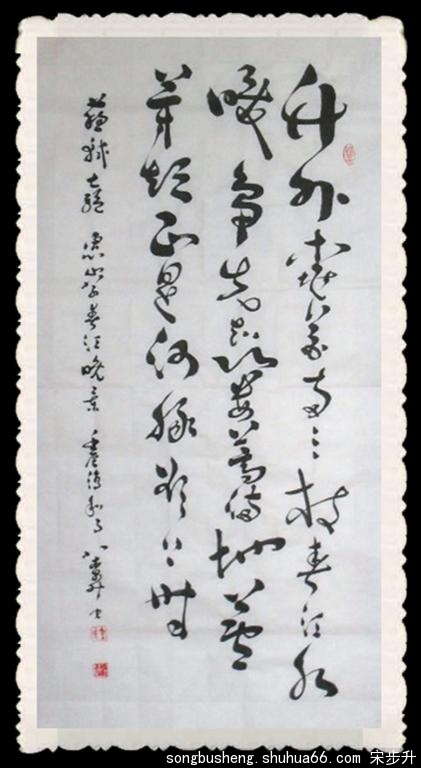 竹外桃花两三枝春江水
暖鸭先知蒌蒿满地芦
芽短正是河豚欲上时
苏轼七绝 惠崇春江晚景
songbusheng.shuhua66.com 宋步升